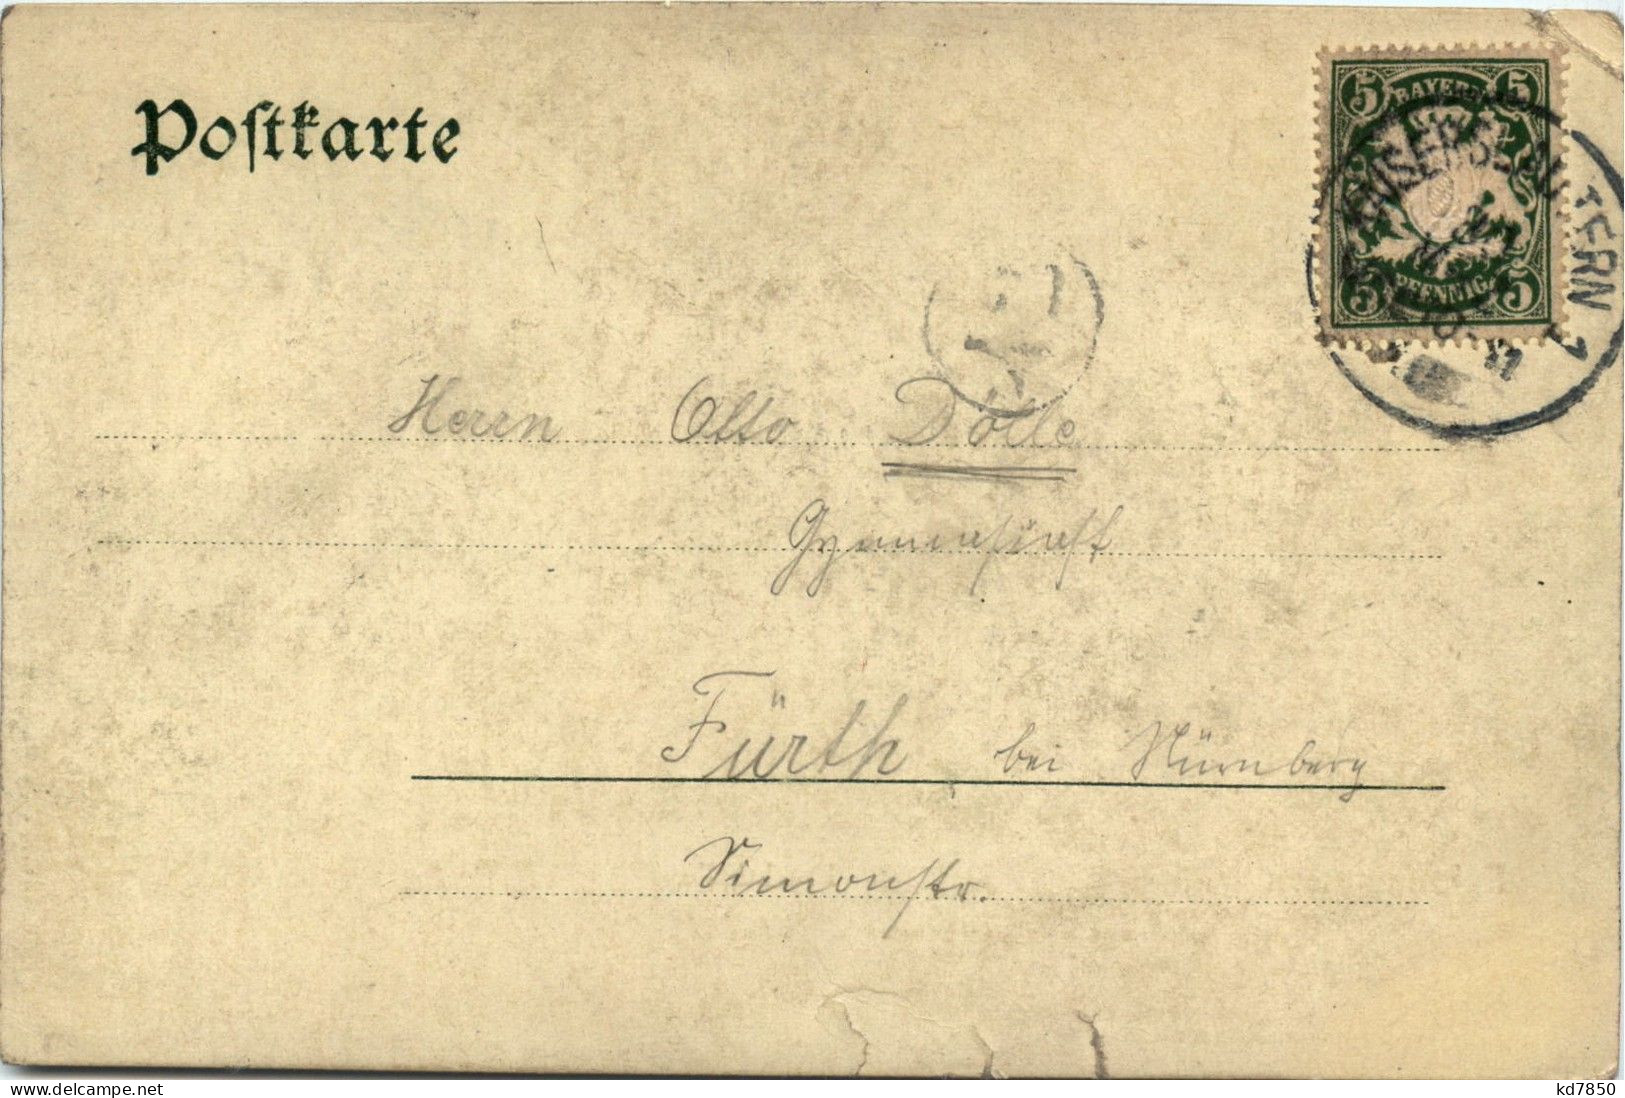 Postkarte
5 BAYERN 5
5 PFENNIG 5
KAISERSLAUTERN 1
Herrn Otto Dölle
Gymnasiast
Fürth bei Nürnberg
Simonstr.
www.delcampe.net
kd7850